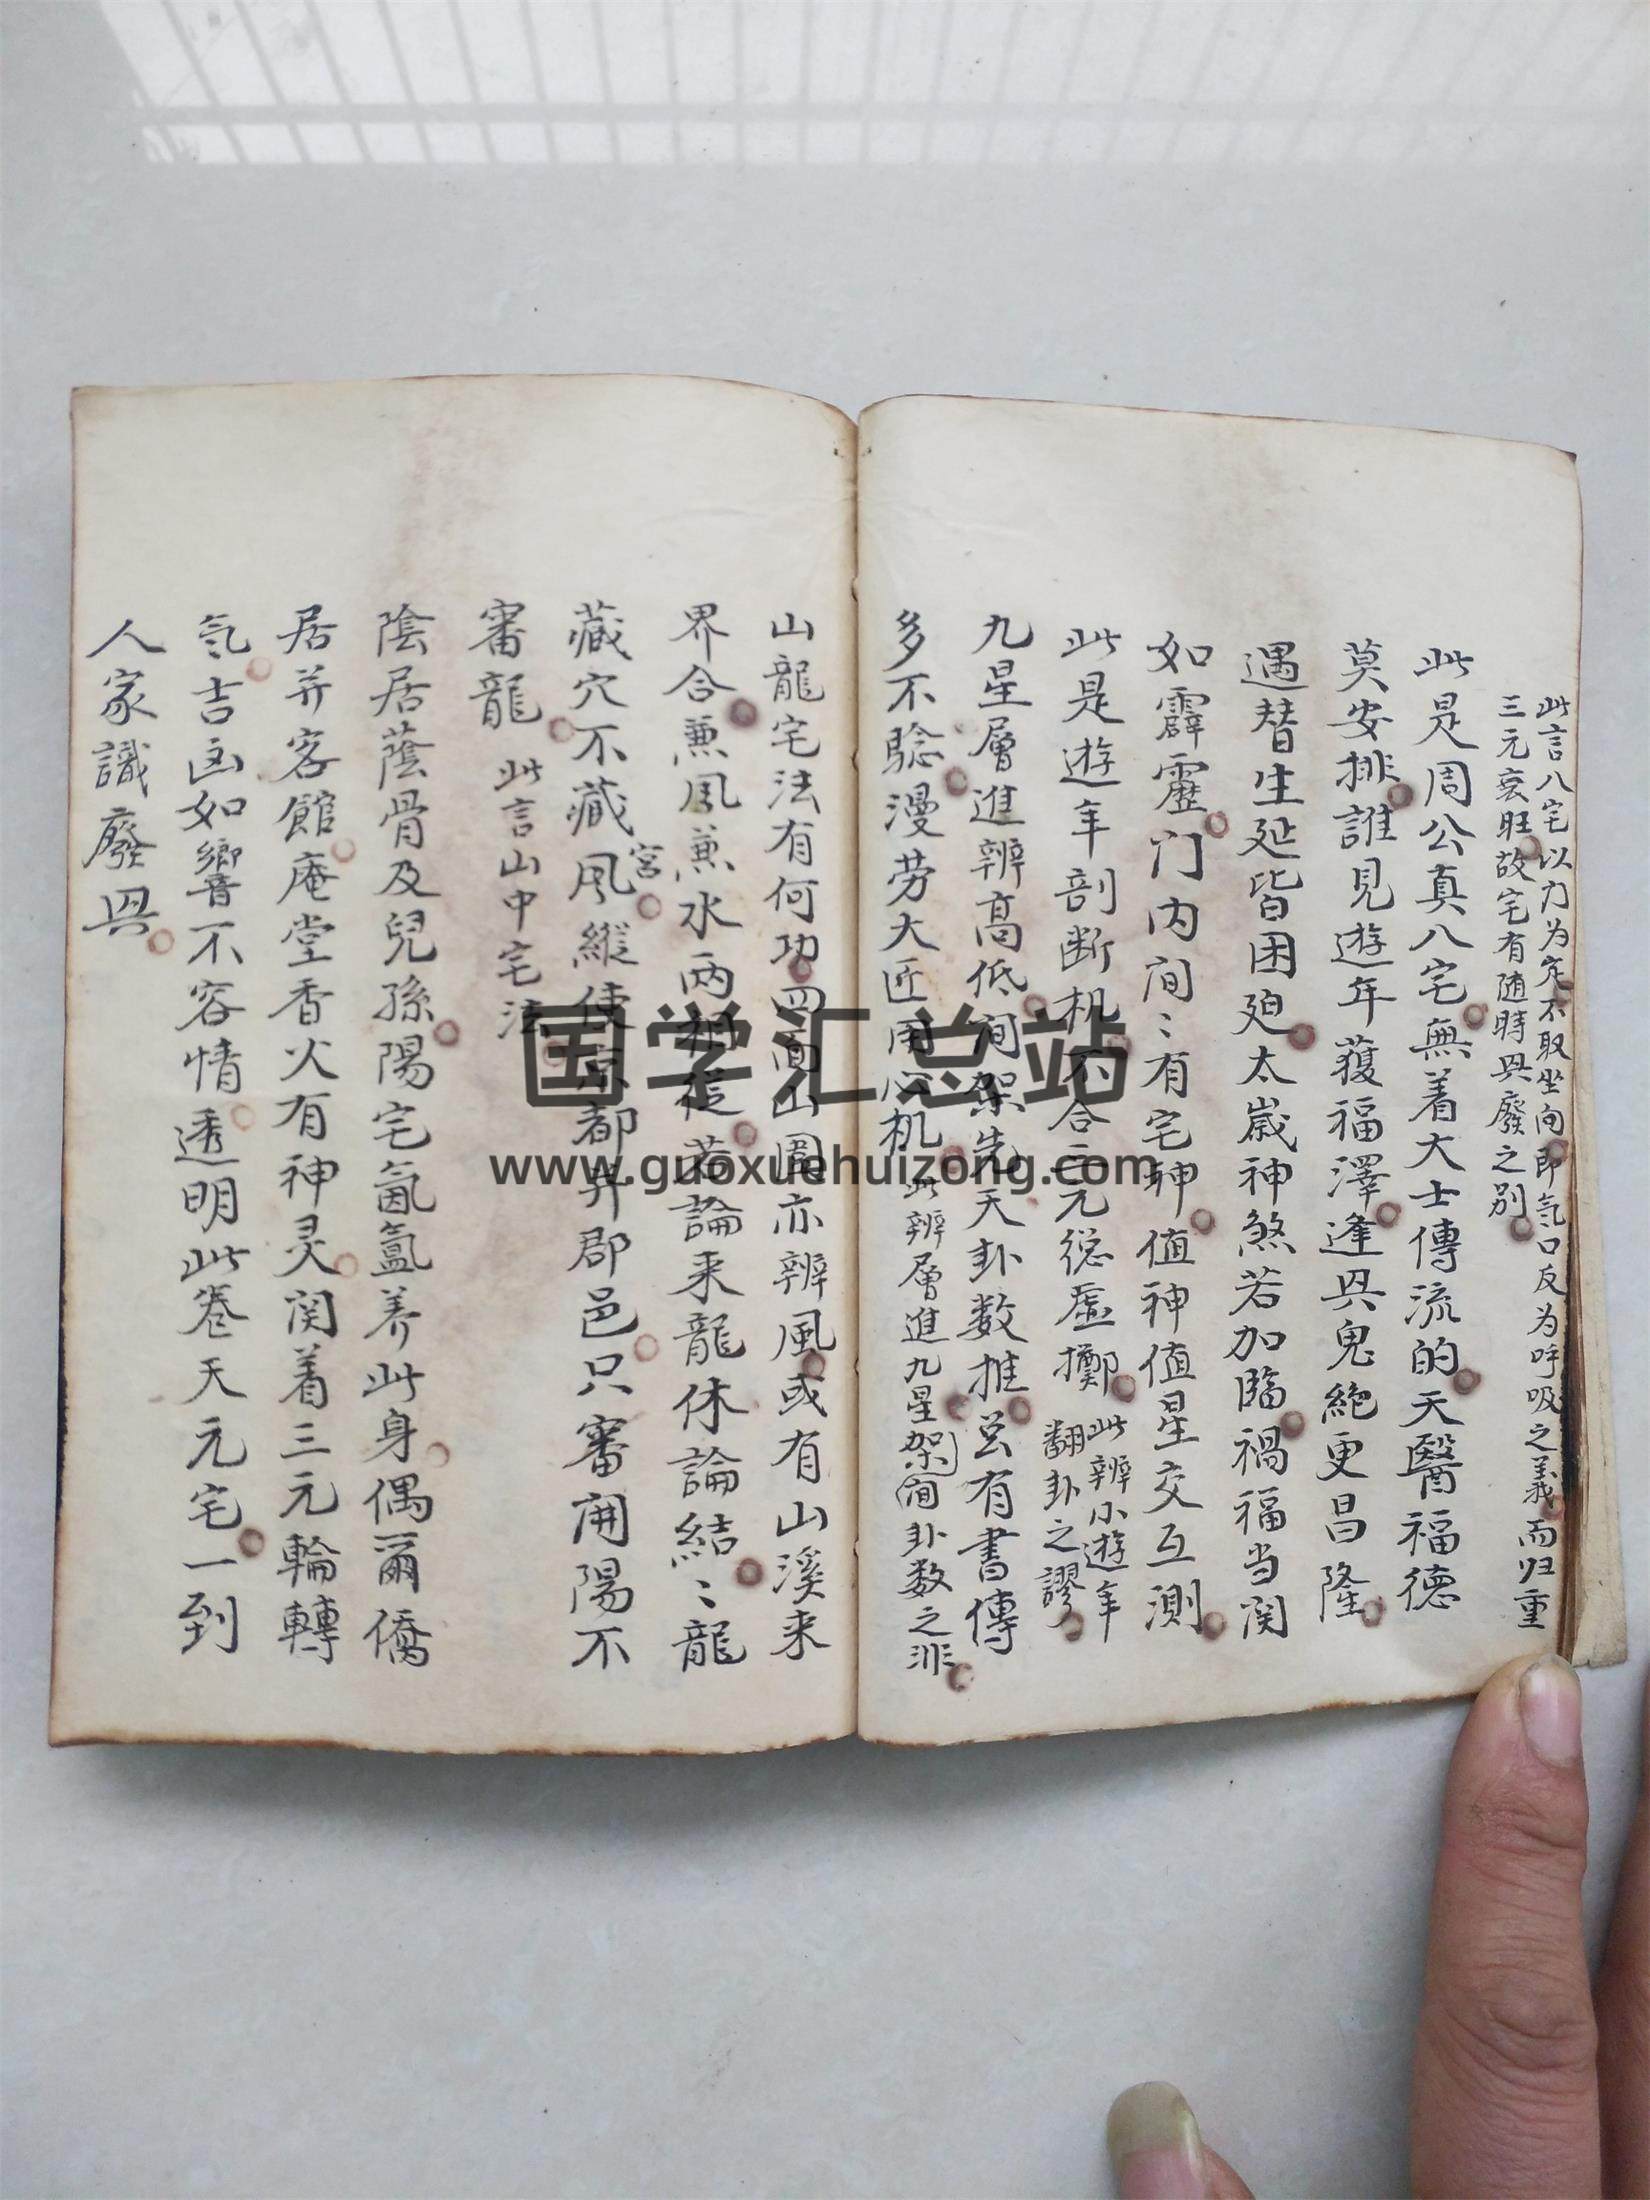 此言八宅以力为定不取坐向即氣口反为呼吸之義而归重
三元衰旺故宅有随時興廢之别
此是周公真八宅無着大士傳流的天醫福德
莫安排誰見遊年獲福澤逢興鬼絶更昌隆
遇替生延皆困廹太歲神煞若加臨禍福当関
如霹靂门内间〻有宅神值神值星交互测
此是遊年剖断机不合三元總虛擲
此辨小遊年
翻卦之謬
九星層進辨高低间架先天卦数推
有書傳
多不騐漫劳大匠用心机
此辨層進九星架间卦数之非
山龍宅法有何功四面山圍亦辨風或有山溪来
界合兼風兼水两相從若論来龍休論結〻龍
藏穴不藏風縱使京都并郡邑只審開陽不
宮
審龍
此言山中宅法
陰居蔭骨及兒孫陽宅氤氳养此身偶爾僑
居并客館庵堂香火有神灵関着三元輪轉
氣吉凶如響不容情透明此卷天元宅一到
人家識廢興
国学汇总站
www.guoxuehuizong.com